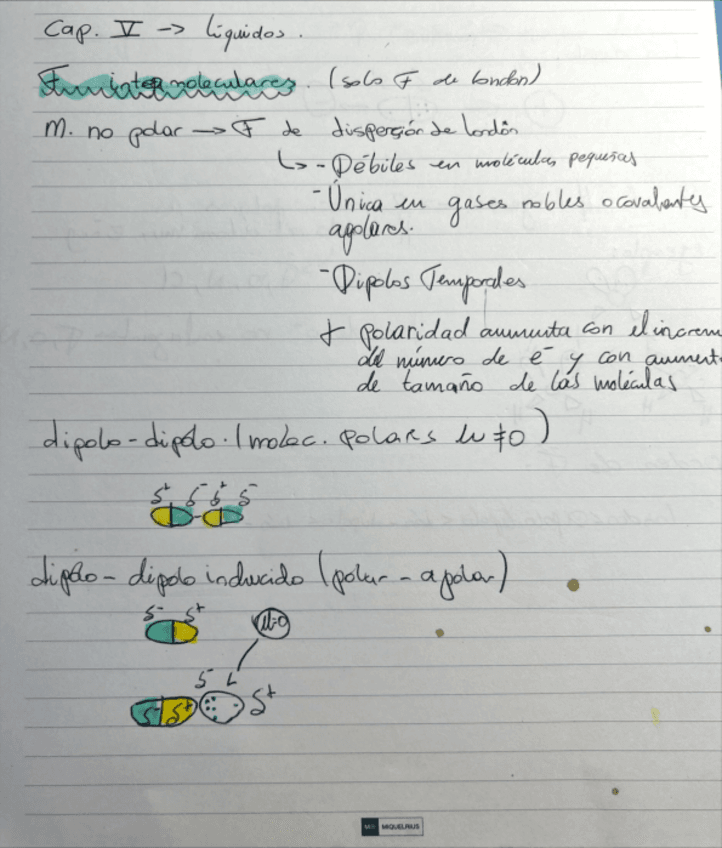 Cap. V -> líquidos.
F. intermoleculares. (solo F de London)
M. no polar -> F de dispersión de london
↳ - Débiles en moléculas pequeñas
- Única en gases nobles o covalentes
apolares.
- Dipolos Temporales
+ polaridad aumenta con el increm
del número de e⁻ y con aument
de tamaño de las moléculas
dipolo - dipolo. (molec. polars u ≠ 0)
δ⁺ δ⁻ δ⁺ δ⁻
dipolo - dipolo inducido (polar - apolar)
δ⁻ δ⁺ u=0
δ⁻
δ⁻ δ⁺ δ⁺
MR MIQUELRIUS